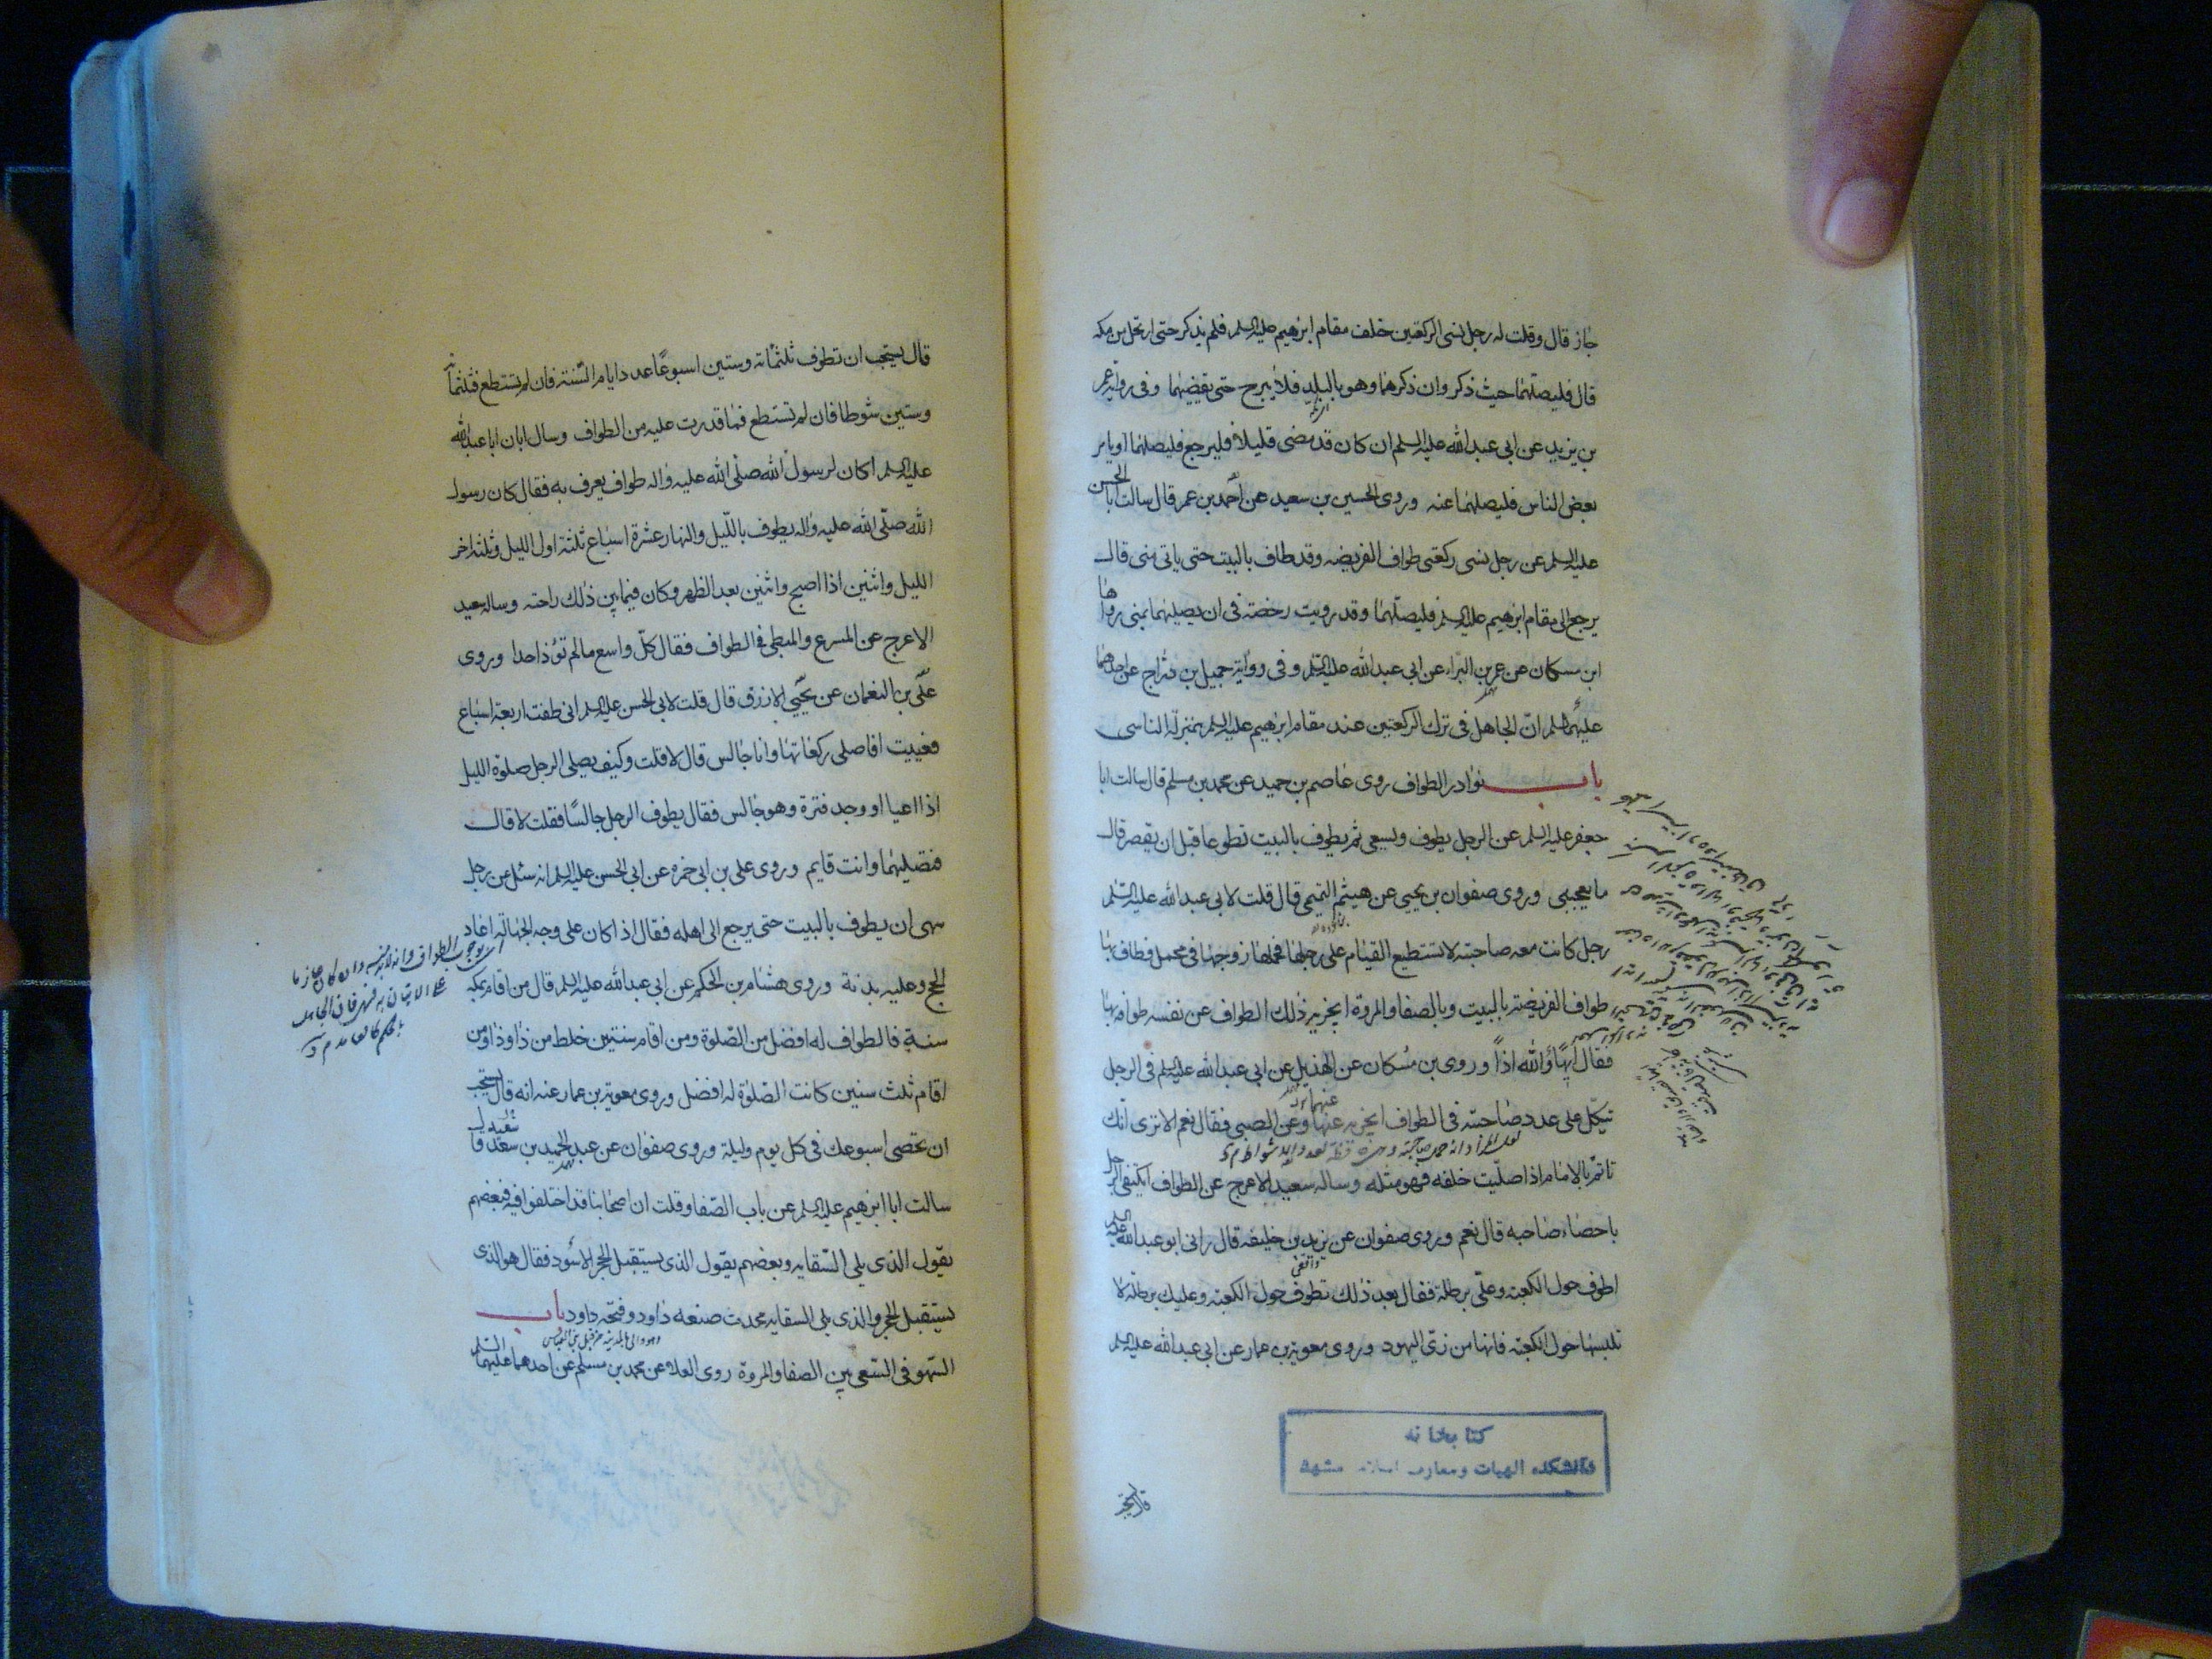 جاز قال وقلت له رجل نسى الركعتين خلف مقام ابرهيم عليه السلم فلم يذكر حتى ارتحل من مكه
قال فليصلهما حيث ذكر وان ذكرهما وهو بالبلد فلا يبرح حتى يقضيهما وفى رواية عمر
بن يزيد عن ابى عبد الله عليه السلم ان كان قد مضى قليلا فليرجع فليصلهما او يامر
بعض الناس فليصلهما عنه وروى الحسين بن سعيد عن احمد بن عمر قال سالت ابا الحسن
عليه السلم عن رجل نسى ركعتى طواف الفريضه وقد طاف بالبيت حتى ياتى منى قال
يرجع الى مقام ابرهيم عليه السلم فليصلهما وقد رويت رخصة فى ان يصليهما بمنى رواها
ابن مسكان عن عمر بن البراء عن ابى عبد الله عليه السلم وفى رواية جميل بن دراج عن احدهما
عليهما السلم ان الجاهل فى ترك الركعتين عند مقام ابرهيم عليه السلم بمنزلة الناسى
باب نوادر الطواف روى عاصم بن حميد عن محمد بن مسلم قال سالت ابا
جعفر عليه السلم عن الرجل يطوف ويسعى ثم يطوف بالبيت تطوعا قبل ان يقصر قال
ما يعجبنى وروى صفوان بن يحيى عن هيثم التميمى قال قلت لابى عبد الله عليه السلم
رجل كانت معه صاحبته لا تستطيع القيام على رجلها فحملها زوجها فى محمل فطاف بها
طواف الفريضة بالبيت وبالصفا والمروة ايجزيه ذلك الطواف عن نفسه طوافه بها
فقال ايها والله اذا وروى بن مسكان عن الهذيل عن ابى عبد الله عليه السلم فى الرجل
يتكل على عدد صاحبته فى الطواف ايجزيه عنها وعن الصبى فقال نعم الا ترى انك
تاتم بالامام اذا صليت خلفه فهو مثله وساله سعيد الاعرج عن الطواف ايكتفى الرجل
باحصاء صاحبه قال نعم وروى صفوان عن يزيد بن خليفه قال رانى ابو عبد الله عليه السلم
اطوف حول الكعبة وعلى برطلة فقال بعد ذلك تطوف حول الكعبة وعليك برطلة لا
تلبسها حول الكعبة فانها من زى اليهود وروى معوية بن عمار عن ابى عبد الله عليه السلم
كتابخانه
دانشكده الهيات ومعارف اسلامى مشهد
قال يستحب
قال يستحب ان تطوف ثلثمائة وستين اسبوعا عدد ايام السنة فان لم تستطع فثلثمائة
وستين شوطا فان لم تستطع فما قدرت عليه من الطواف وسال ابان ابا عبد الله
عليه السلم اكان لرسول الله صلى الله عليه واله طواف يعرف به فقال كان رسول
الله صلى الله عليه واله يطوف بالليل والنهار عشرة اسباع ثلثة اول الليل وثلثة اخر
الليل واثنين اذا اصبح واثنين بعد الظهر وكان فيما بين ذلك راحته وساله سعيد
الاعرج عن المسرع والمبطى فى الطواف فقال كل واسع ما لم تؤذ احدا وروى
على بن النعمان عن يحيى الازرق قال قلت لابى الحسن عليه السلم انى طفت اربعة اسباع
فعييت افاصلى ركعاتها وانا جالس قال لا قلت وكيف يصلى الرجل صلوة الليل
اذا اعيا او وجد فترة وهو جالس فقال يطوف الرجل جالسا فقلت لا قال
فتصليهما وانت قايم وروى على بن ابى حمزه عن ابى الحسن عليه السلم انه سئل عن رجل
سهى ان يطوف بالبيت حتى يرجع الى اهله فقال اذا كان على وجه الجهالة اعاد
الحج وعليه بدنة وروى هشام بن الحكم عن ابى عبد الله عليه السلم قال من اقام بمكه
سنة فالطواف له افضل من الصلوة ومن اقام سنتين خلط من ذا وذا ومن
اقام ثلث سنين كانت الصلوة له افضل وروى معوية بن عمار عنه انه قال يستحب
ان تحصى اسبوعك فى كل يوم وليلة وروى صفوان عن عبد الحميد بن سعد قال
سالت ابا ابرهيم عليه السلم عن باب الصفا وقلت ان اصحابنا قد اختلفوا فيه فبعضهم
يقول الذى يلى السقايه وبعضهم يقول الذى يستقبل الحجر الاسود فقال هو الذى
يستقبل الحجر والذى يلى السقايه محدث صنعه داود وفتحه داود باب
السهو فى السعى بين الصفا والمروة روى العلا عن محمد بن مسلم عن احدهما عليهما السلم